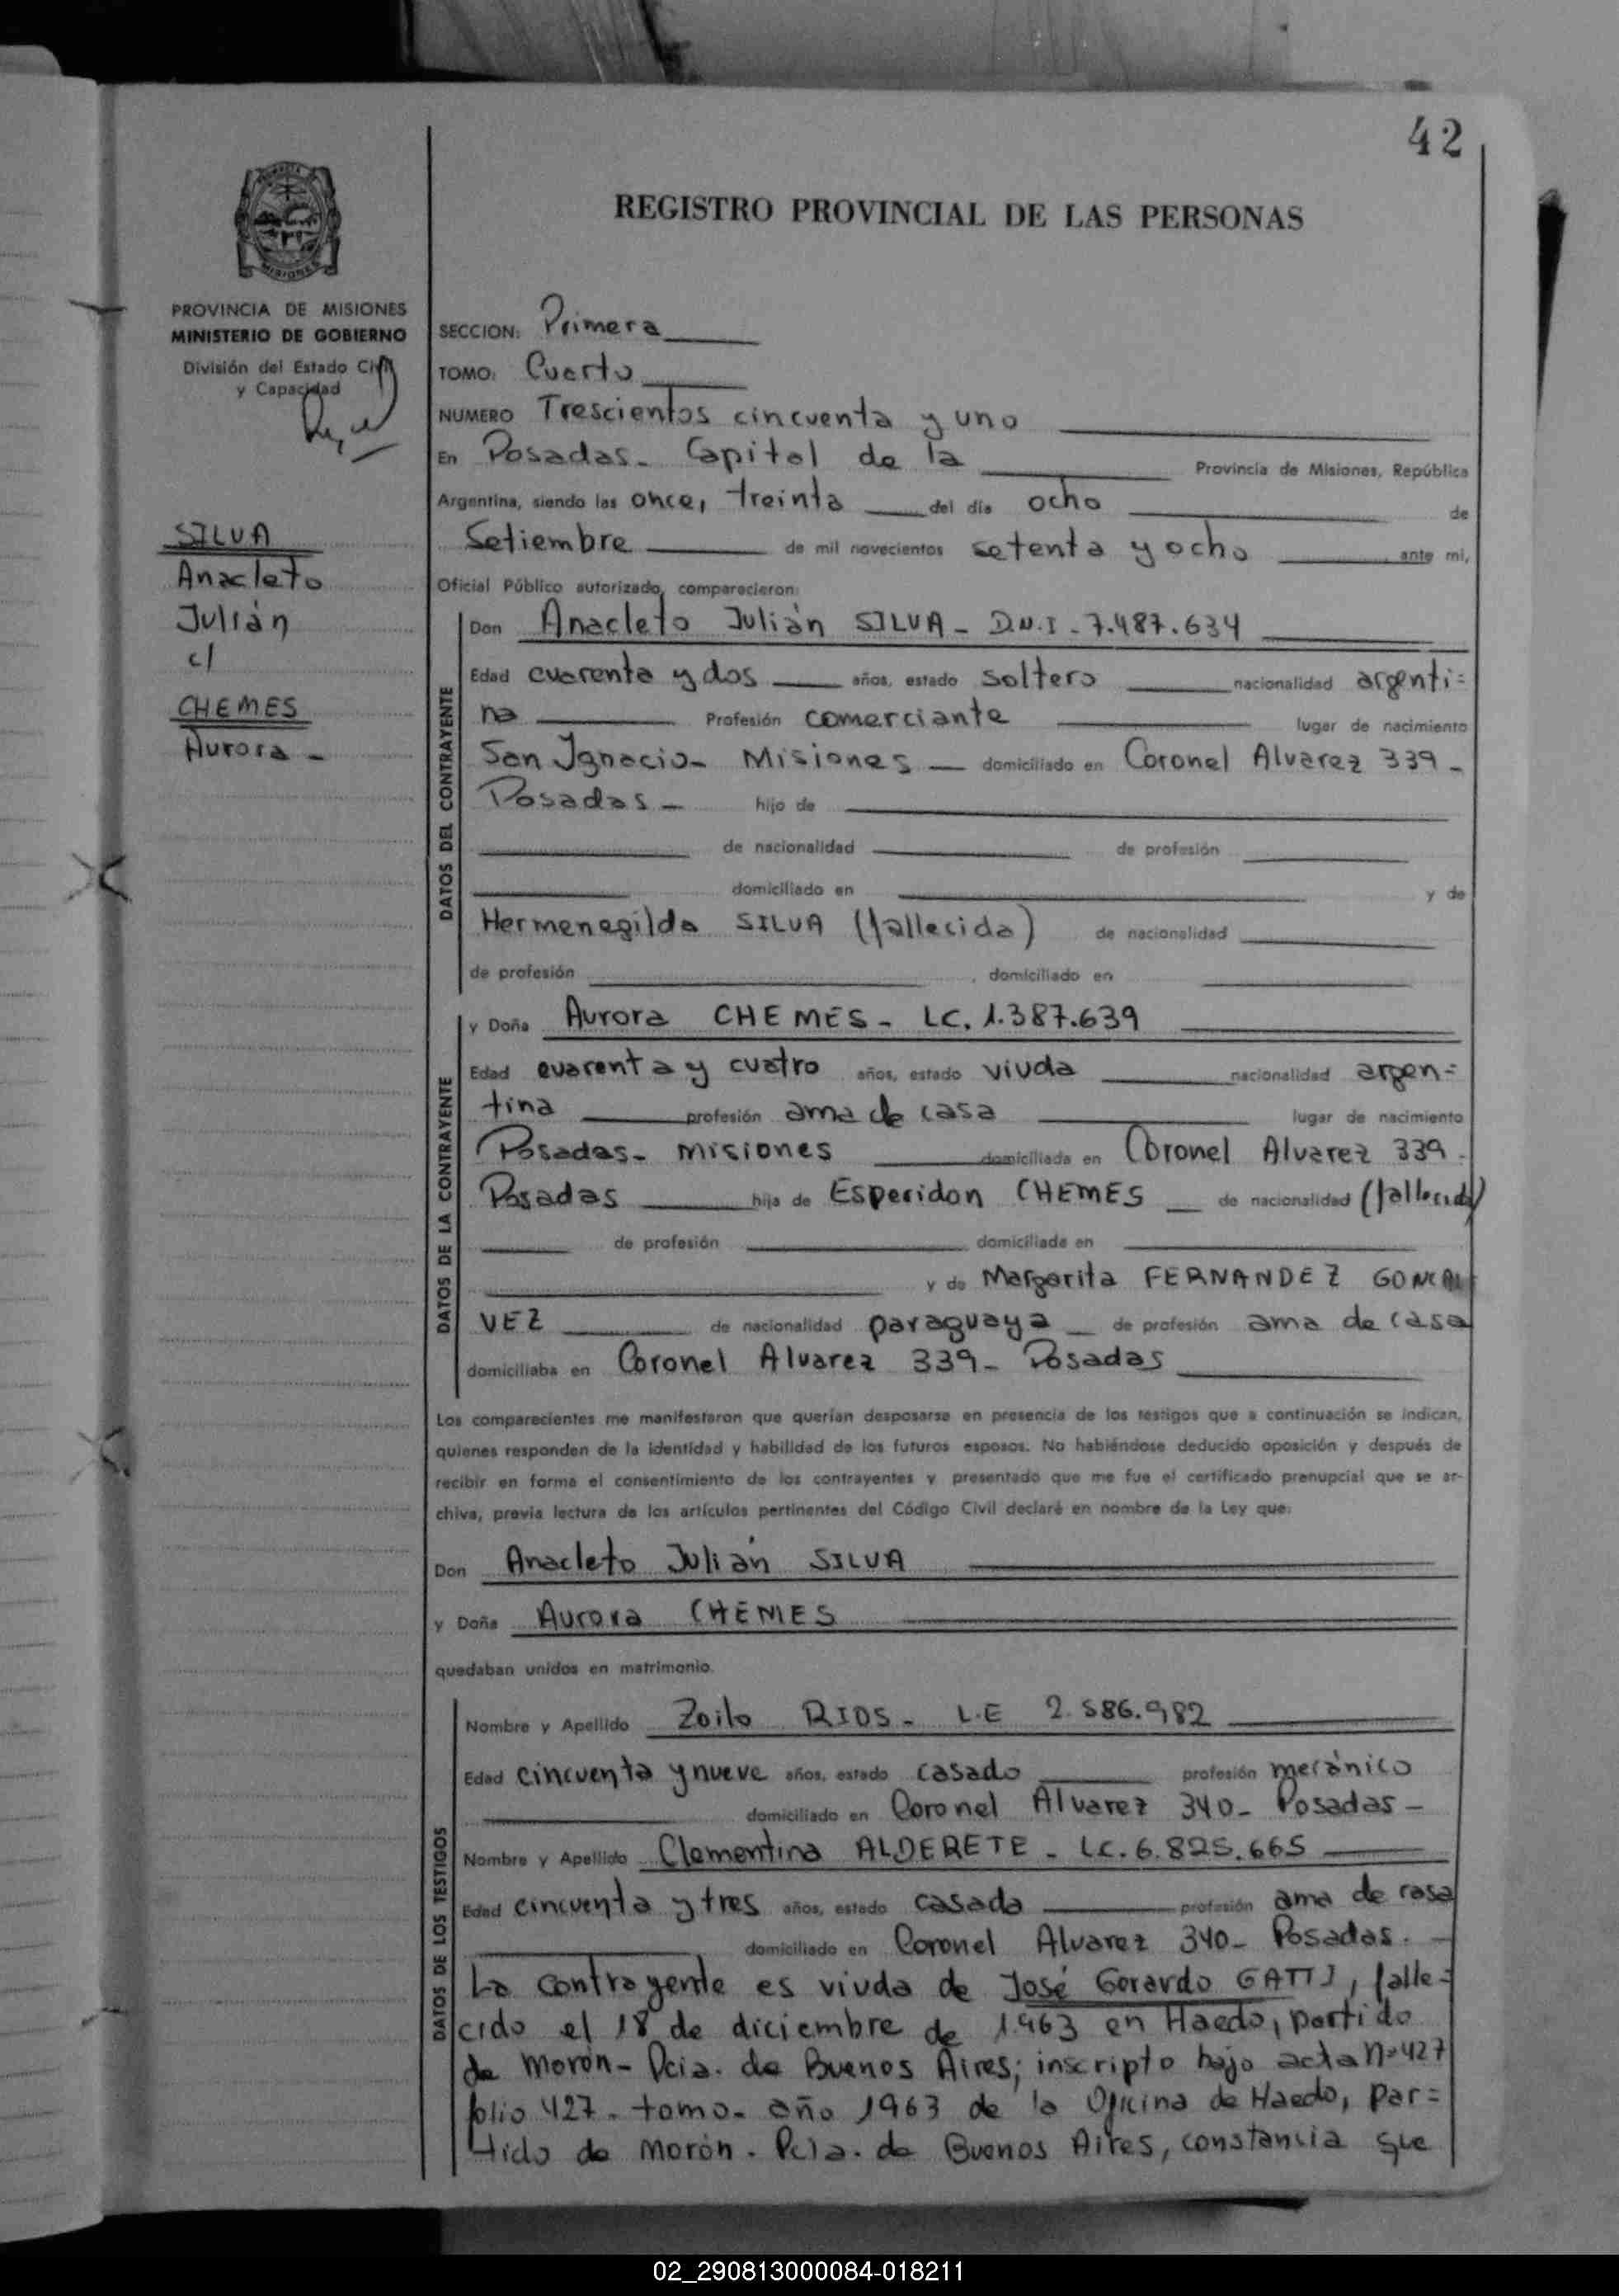 42
REGISTRO PROVINCIAL DE LAS PERSONAS
PROVINCIA DE MISIONES
MINISTERIO DE GOBIERNO
División del Estado Civil
y Capacidad
SILVA
Anacleto
Julián
c/
CHEMES
Aurora -
SECCION: Primera
TOMO: Cuarto
NUMERO Trescientos cincuenta y uno
En Posadas - Capital de la Provincia de Misiones, República
Argentina, siendo las once, treinta del día ocho de
Setiembre de mil novecientos setenta y ocho ante mi,
Oficial Público autorizado, comparecieron:
DATOS DEL CONTRAYENTE
Don Anacleto Julián SILVA - D.N.I - 7.487.634
Edad cuarenta y dos años, estado soltero nacionalidad argenti=
na Profesión comerciante lugar de nacimiento
San Ignacio - Misiones - domiciliado en Coronel Alvarez 339 -
Posadas - hijo de
de nacionalidad de profesión
domiciliado en y de
Hermenegilda SILVA (fallecida) de nacionalidad
de profesión , domiciliado en
DATOS DE LA CONTRAYENTE
y Doña Aurora CHEMES - LC. 1.387.639
Edad cuarenta y cuatro años, estado viuda nacionalidad argen=
tina profesión ama de casa lugar de nacimiento
Posadas - Misiones domiciliada en Coronel Alvarez 339 -
Posadas hija de Esperidon CHEMES de nacionalidad (fallecido)
de profesión domiciliado en
y de Margarita FERNANDEZ GONCAL
VEZ de nacionalidad paraguaya de profesión ama de casa
domiciliaba en Coronel Alvarez 339 - Posadas
Los comparecientes me manifestaron que querían desposarse en presencia de los testigos que a continuación se indican,
quienes responden de la identidad y habilidad de los futuros esposos. No habiéndose deducido oposición y después de
recibir en forma el consentimiento de los contrayentes y presentado que me fue el certificado prenupcial que se ar-
chiva, previa lectura de los artículos pertinentes del Código Civil declaré en nombre de la Ley que:
Don Anacleto Julián SILVA
y Doña Aurora CHEMES
quedaban unidos en matrimonio.
DATOS DE LOS TESTIGOS
Nombre y Apellido Zoilo RIOS - L.E 2.586.982
Edad cincuenta y nueve años, estado casado profesión mecánico
domiciliado en Coronel Alvarez 340 - Posadas -
Nombre y Apellido Clementina ALDERETE - LC. 6.825.665
Edad cincuenta y tres años, estado casada profesión ama de casa
domiciliado en Coronel Alvarez 340 - Posadas. -
La contrayente es viuda de José Gerardo GATTI, falle=
cido el 18 de diciembre de 1.963 en Haedo, partido
de Morón - Pcia. de Buenos Aires; inscripto bajo acta nº 427
folio 427 - tomo - año 1963 de la Oficina de Haedo, Par=
tido de Morón - Pcia. de Buenos Aires, constancia que
02_290813000084-018211